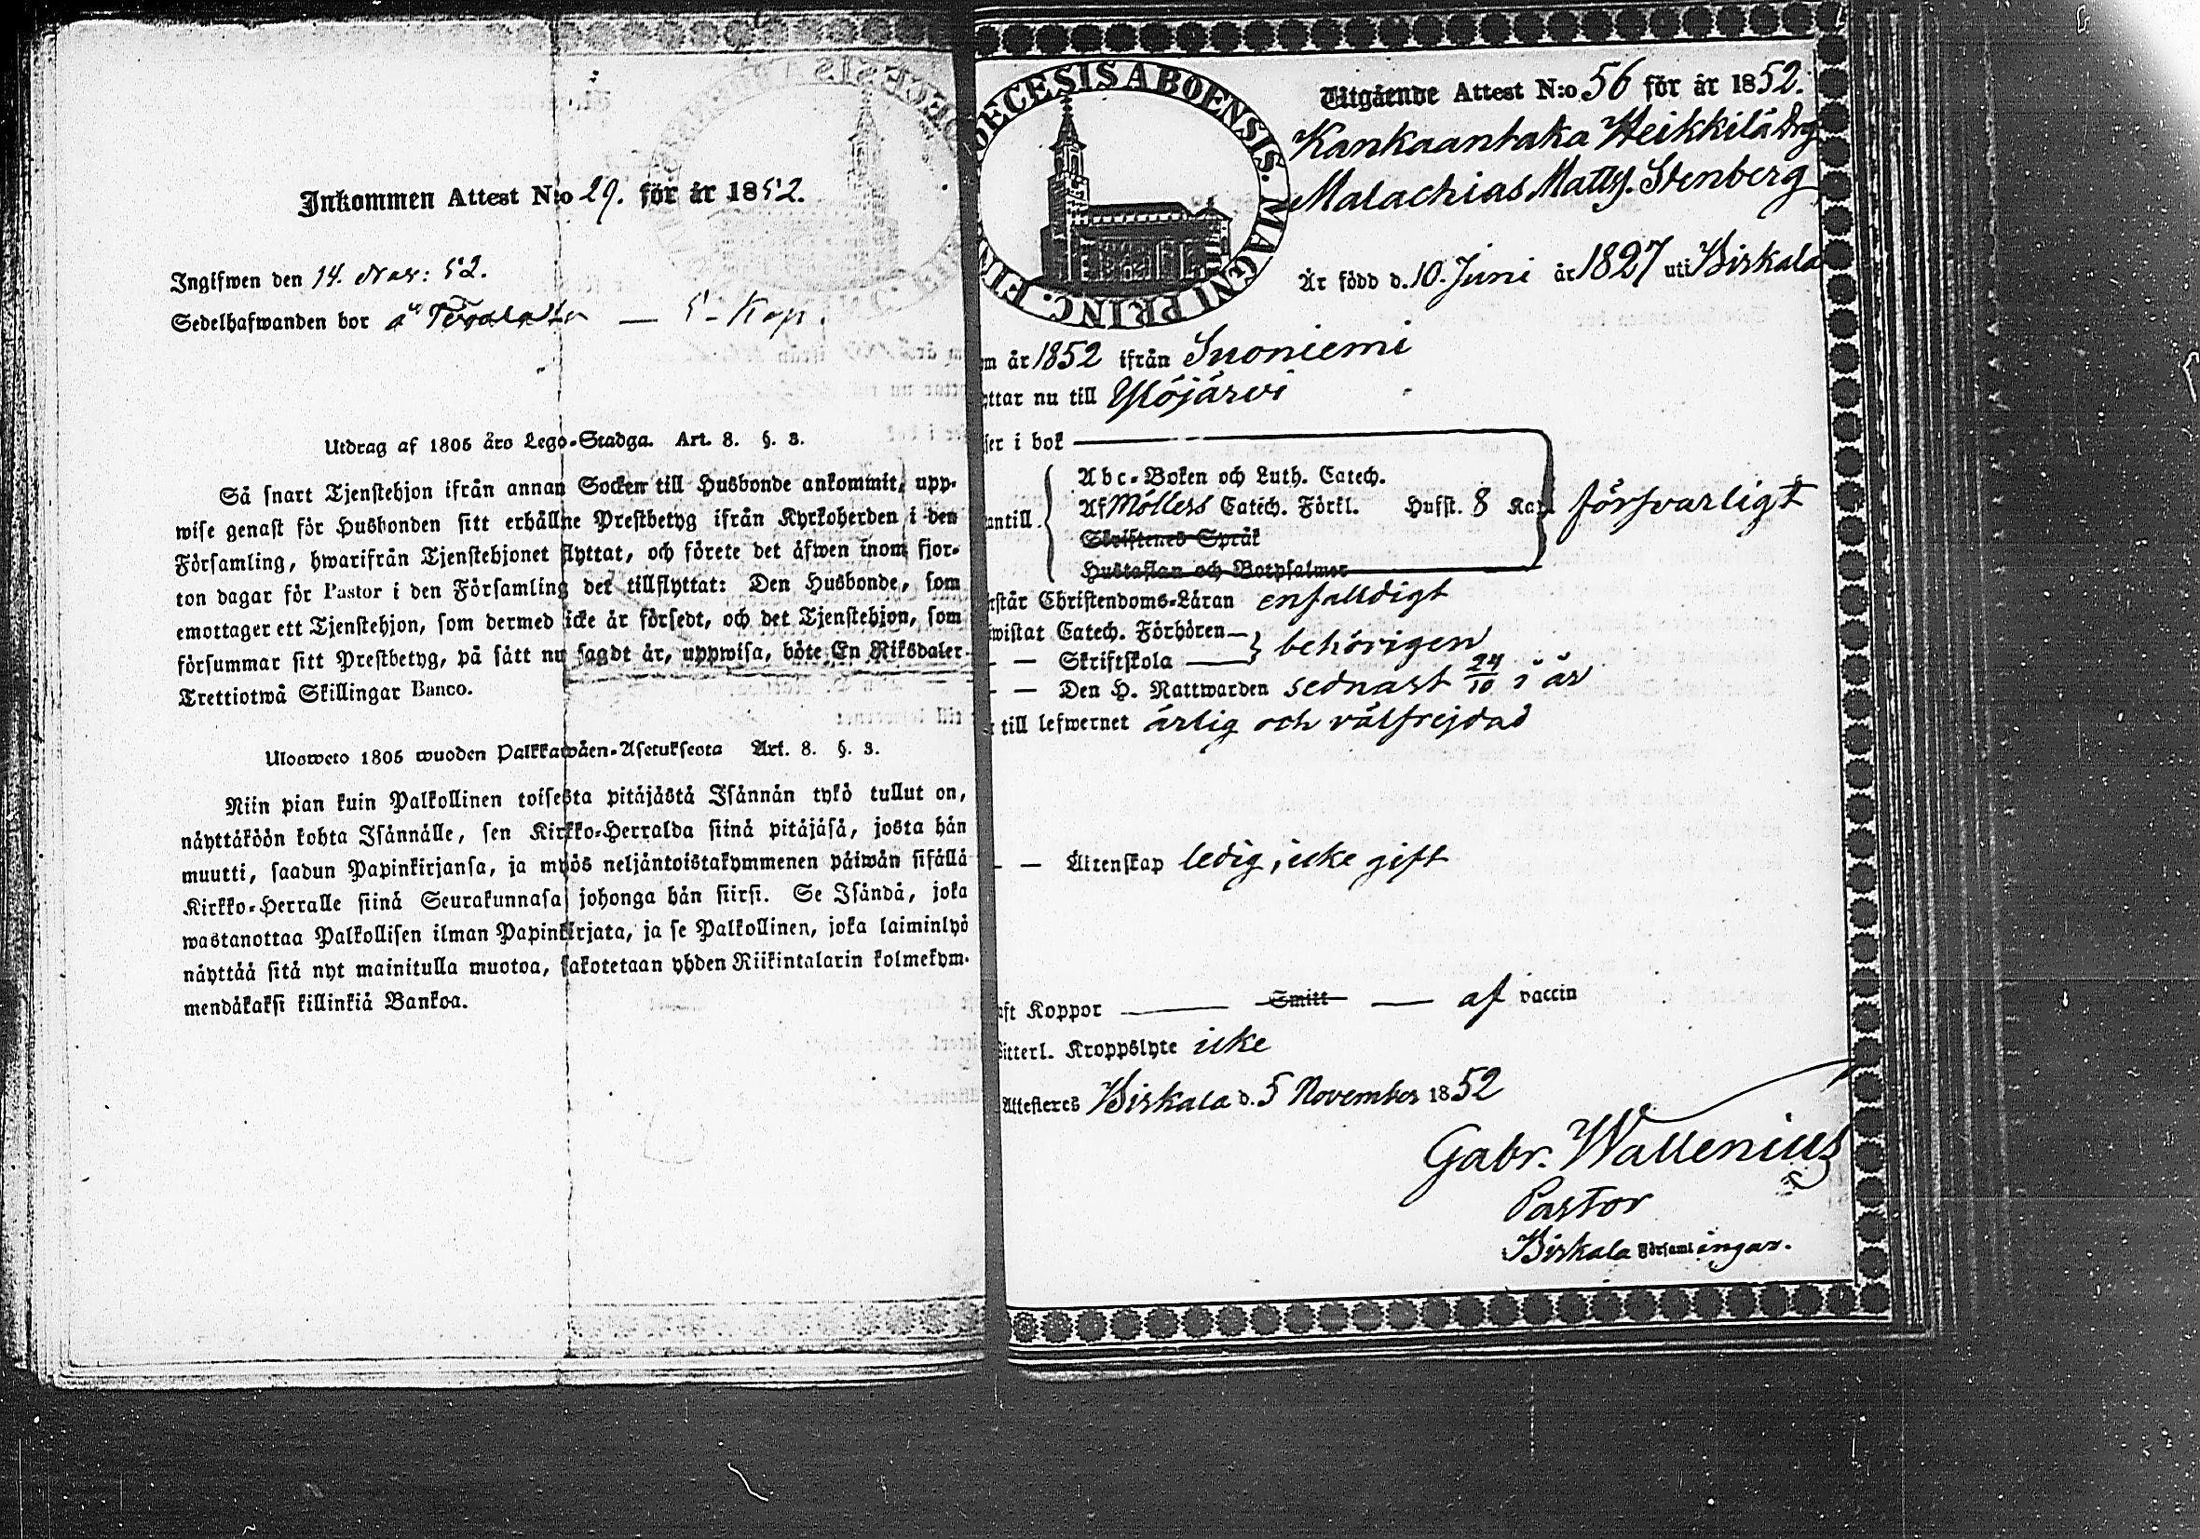 Inkommen Attest N:o 29. för år 1852.
Ingifwen den 14. Nov: 52.
Sedelhafwanden bor å — 5 - Kop.
Utdrag af 1805 års Lego-Stadga. Art. 8. §. 3.
Så snart Tjenstehjon ifrån annan Socken till Husbonde ankommit, upp-
wise genast för Husbonden sitt erhållne Prestbetyg ifrån Kyrkoherden i den
Församling, hwarifrån Tjenstehjonet flyttat, och förete det äfwen inom fjor-
ton dagar för Pastor i den Församling det tillflyttat: Den Husbonde, som
emottager ett Tjenstehjon, som dermed icke är försedt, och det Tjenstehjon, som
försummar sitt Prestbetyg, på sätt nu sagdt är, uppwisa, böte En Riksdaler
Trettiotwå Skillingar Banco.
Ulosweto 1805 wuoden Palkkawäen-Asetuksesta Art. 8. §. 3.
Niin pian kuin Palkollinen toisesta pitäjästä Isännän tykö tullut on,
näyttäköön kohta Isännälle, sen Kirkko-Herralda siinä pitäjäsä, josta hän
muutti, saadun Papinkirjansa, ja myös neljäntoistakymmenen päiwän sisällä
Kirkko-Herralle siinä Seurakunnasa johonga hän siirsi. Se Isändä, joka
wastanottaa Palkollisen ilman Papinkirjata, ja se Palkollinen, joka laiminlyö
näyttää sitä nyt mainitulla muotoa, sakotetaan yhden Riikintalarin kolmekym-
mendäkaksi killinkiä Bankoa.
ECESIS ABOENSIS. MAGNI PRINC. FIN
Utgående Attest N:o 56 för år 1852.
Kankaantaka Heikkilä Drg
Malachias Matts. Stenberg
Är född d. 10. Juni år 1827 uti Birkala
m år 1852 ifrån Suoniemi
yttar nu till Ylöjärvi
ser i bok —
Abc-Boken och Luth. Catech.
antill. Af Möllers Catech. Förkl. Hufst. 8 Kap. försvarligt
Skriftenes Språk
Hustaflan och Botpsalmer
rstår Christendoms-Läran enfalldigt
wistat Catech. Förhören — behörigen
— — Skriftskola —
— — Den H. Nattwarden sednast 24/10 i år
till lefwernet ärlig och välfrejdad
— — Äktenskap ledig, icke gift
aft Koppor — Smitt — af vaccin
itterl. Kroppslyte icke
Attesteres Birkala d. 5 November 1852
Gabr. Wallenius
Pastor
Birkala Församlingar.